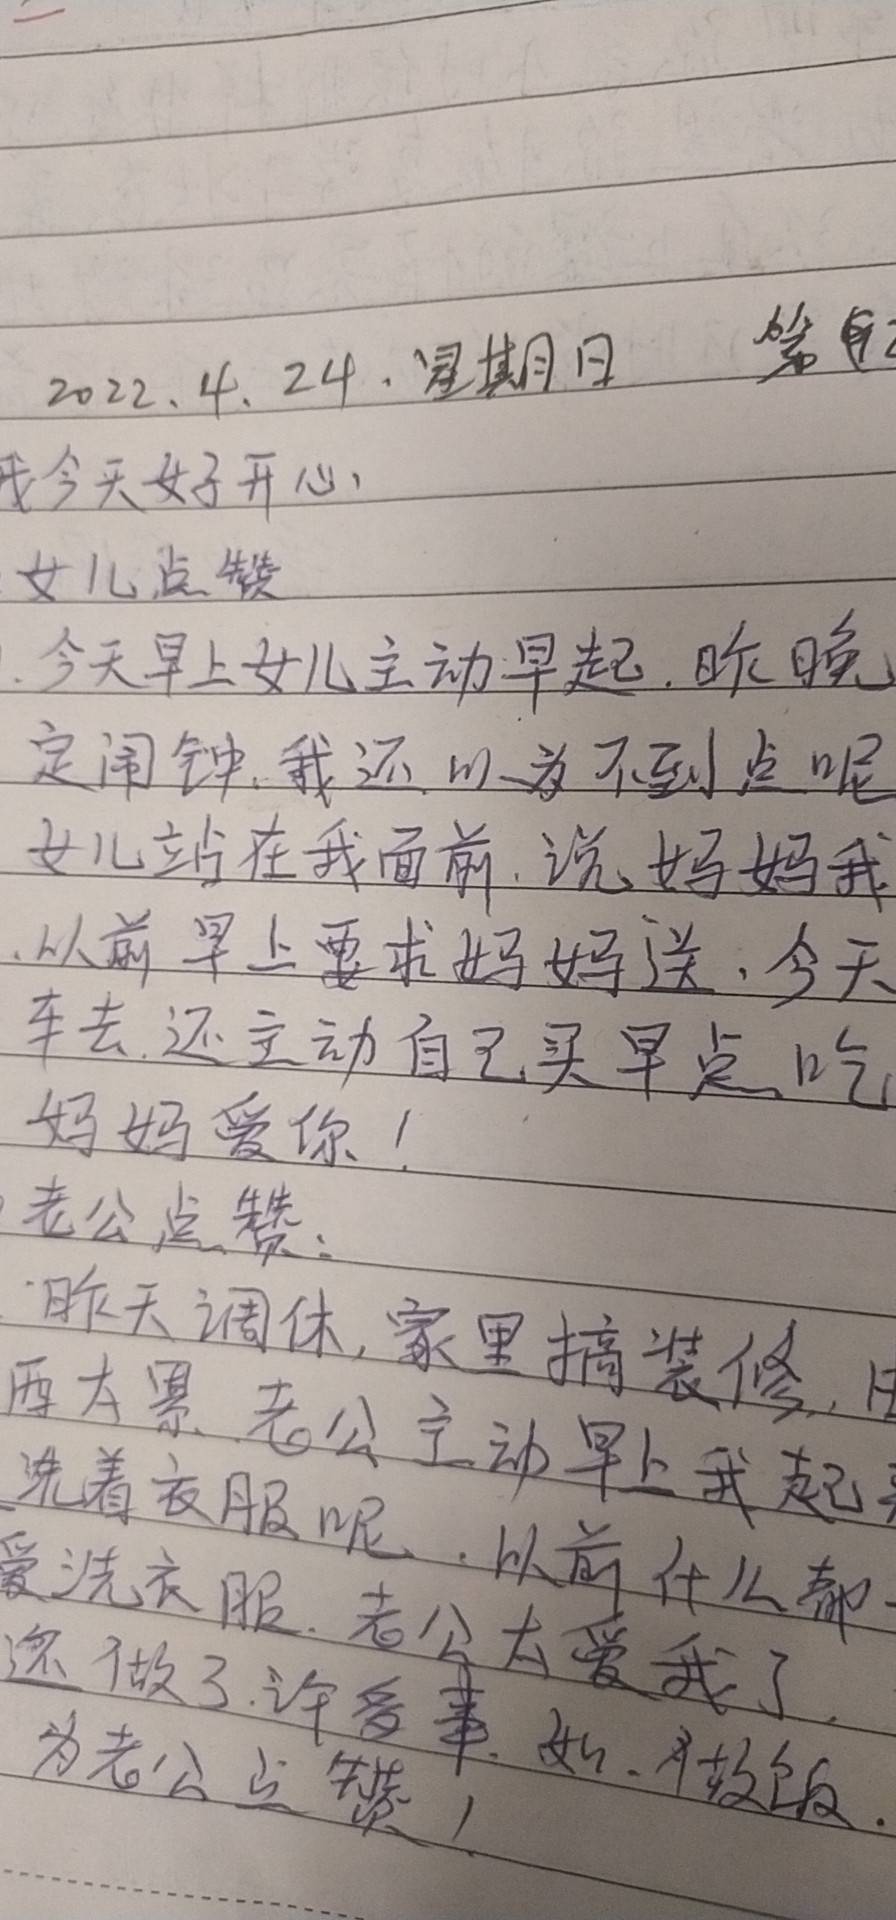 2022.4.24.星期日 第
我今天好开心,
女儿点赞
.今天早上女儿主动早起.昨晚
定闹钟.我还以为不到点呢
女儿站在我面前.说妈妈我
.以前早上要求妈妈送.今天
车去.还主动自己买早点吃
妈妈爱你!
老公点赞:
昨天调休,家里搞装修,
太累.老公主动早上我起
洗着衣服呢.以前什么都
爱洗衣服.老公太爱我了.
还做了许多事.如.做饭.
为老公点赞!